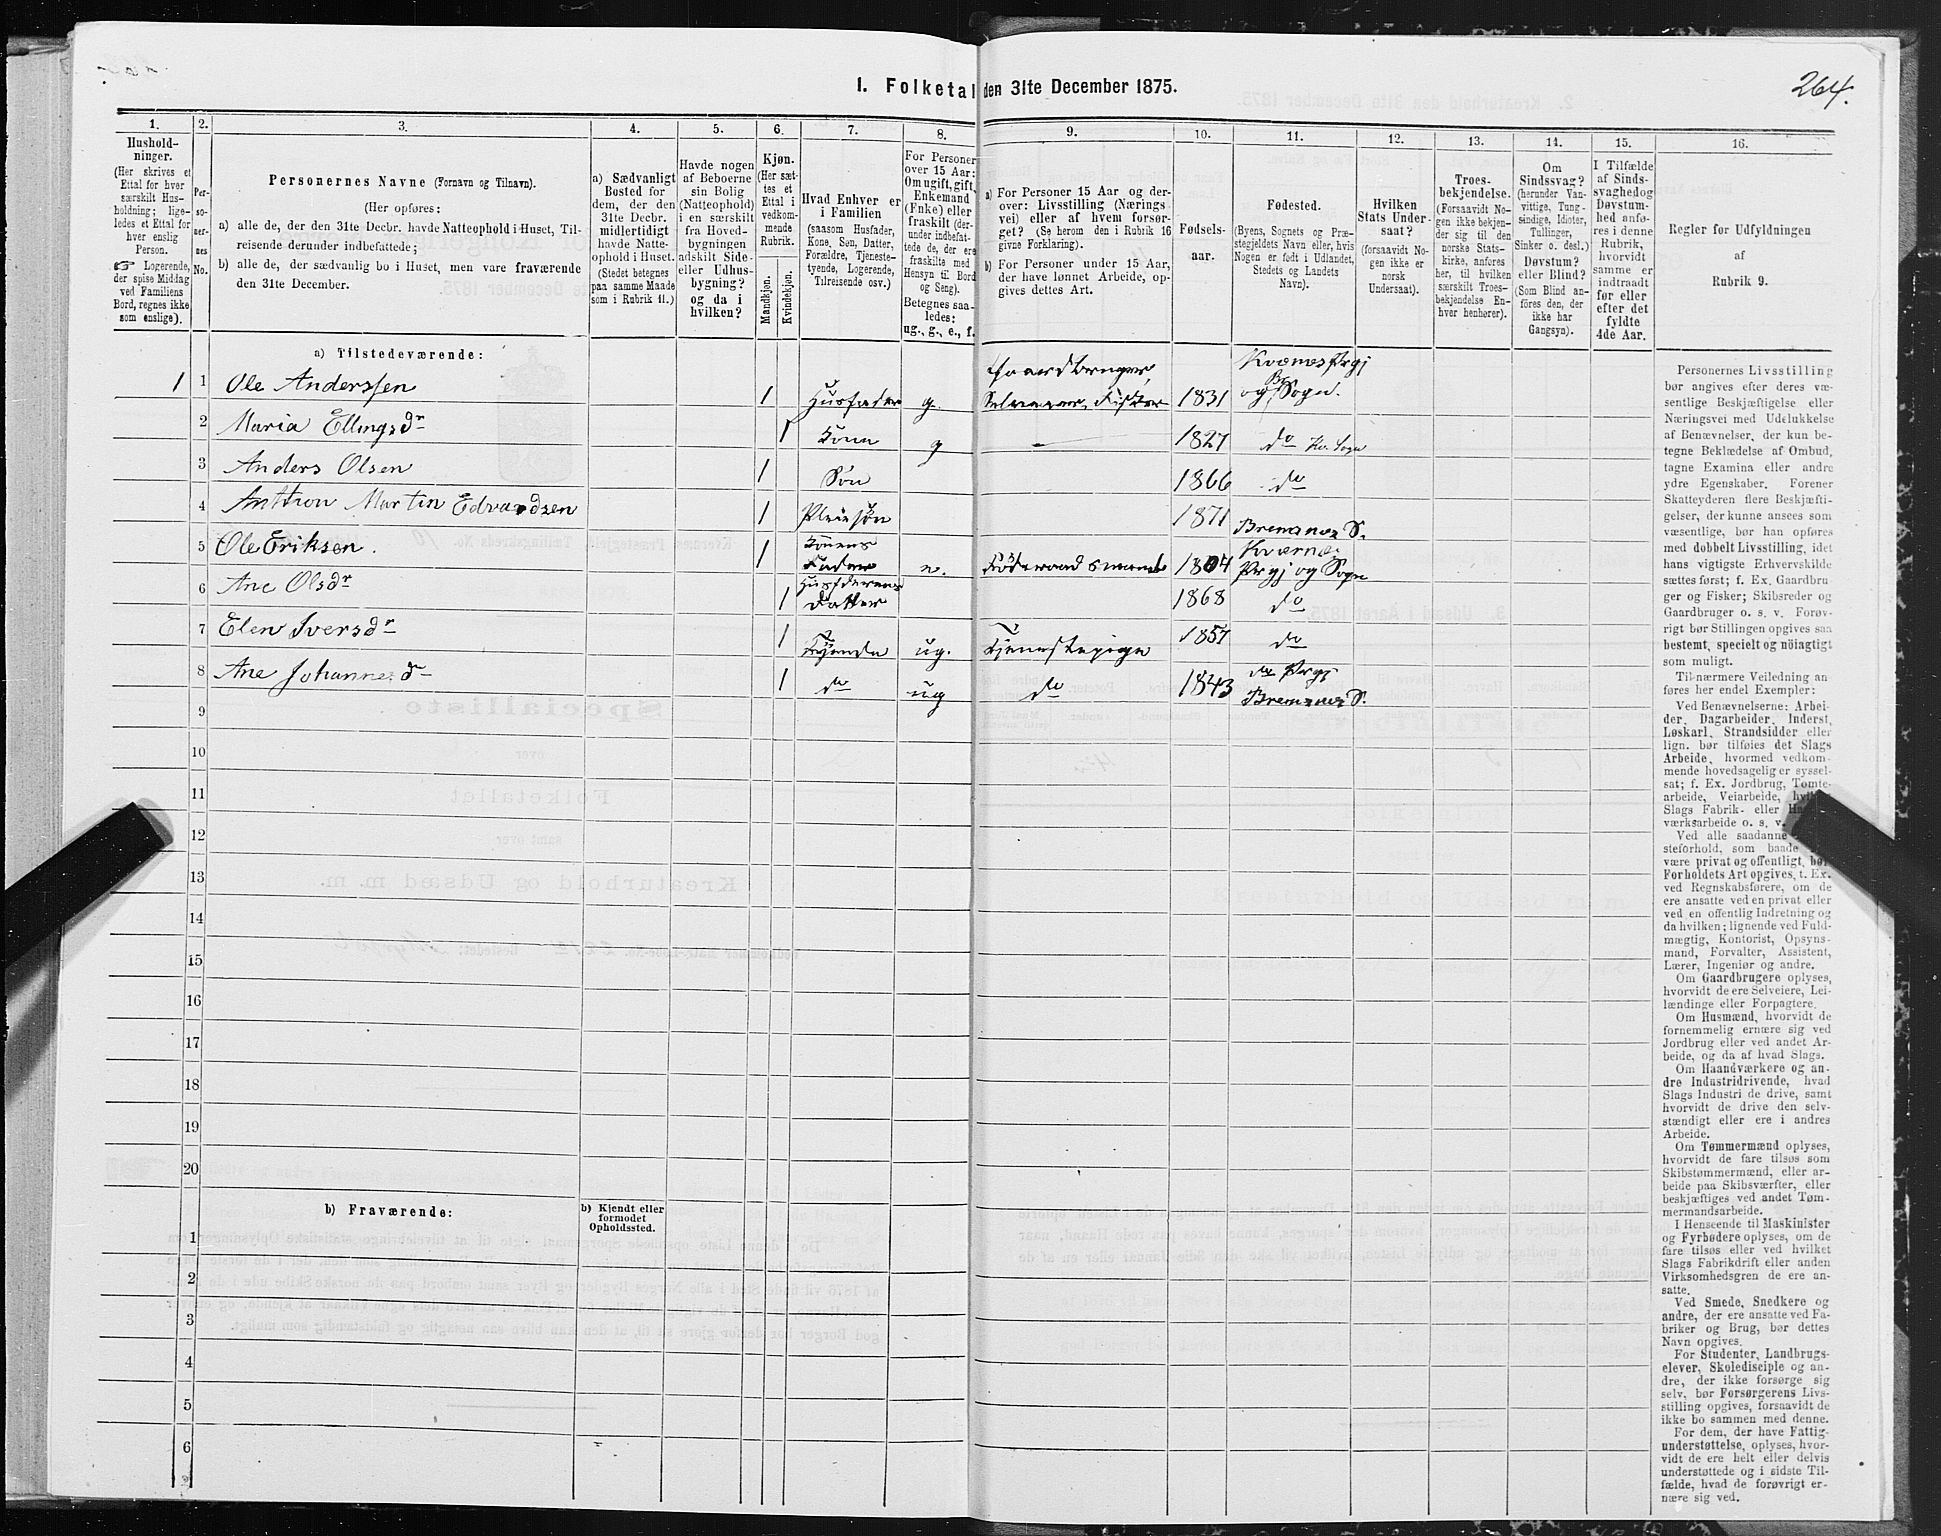 264.
1. Folketal den 31te December 1875.
1.
Hushold-
ninger.
(Her skrives et
Ettal for hver
særskilt Hus-
holdning; lige-
ledes et Ettal for
hver enslig
Person.
☞ Logerende,
der spise Middag
ved Familiens
Bord, regnes ikke
som enslige).
2.
Per-
so-
ner-
nes
No.
3.
Personernes Navne (Fornavn og Tilnavn).
(Her opføres:
a) alle de, der den 31te Decbr. havde Natteophold i Huset, Til-
reisende derunder indbefattede;
b) alle de, der sædvanlig bo i Huset, men vare fraværende
den 31te December.
4.
a) Sædvanligt
Bosted for
dem, der den
31te Decbr.
midlertidigt
havde Natte-
ophold i Huset.
(Stedet betegnes
paa samme Maade
som i Rubrik 11.)
5.
Havde nogen
af Beboerne
sin Bolig
(Natteophold)
i en særskilt
fra Hoved-
bygningen
adskilt Side-
eller Udhus-
bygning?
og da i
hvilken?
6.
Kjøn.
(Her sæt-
tes et
Ettal i
vedkom-
mende
Rubrik.
Mandkjøn.
Kvindekjøn.
7.
Hvad Enhver er
i Familien
(saasom Husfader,
Kone, Søn, Datter,
Forældre, Tjeneste-
tyende, Logerende,
Tilreisende osv.)
8.
For Personer
over 15 Aar:
Om ugift, gift,
Enkemand
(Enke) eller
fraskilt (der-
under indbefat-
tede de, der ere
fraskilte med
Hensyn til Bord
og Seng).
Betegnes saa-
ledes:
ug., g., e., f.
9.
a) For Personer 15 Aar og der-
over: Livsstilling (Nærings-
vei) eller af hvem forsør-
get? (Se herom den i Rubrik 16
givne Forklaring).
b) For Personer under 15 Aar,
der have lønnet Arbeide, op-
gives dettes Art.
10.
Fødsels-
aar.
11.
Fødested.
(Byens, Sognets og Præ-
stegjeldets Navn eller, hvis
Nogen er født i Udlandet,
Stedets og Landets
Navn).
12.
Hvilken
Stats Under-
saat?
(forsaavidt No-
gen ikke er
norsk
Undersaat).
13.
Troes-
bekjendelse.
(Forsaavidt No-
gen ikke bekjen-
der sig til den
norske Stats-
kirke, anføres
her, til hvilken
særskilt Troes-
bekjendelse En-
hver henhører).
14.
Om
Sindssvag?
(herunder Van-
vittige, Tung-
sindige, Idioter,
Tullinger,
Sinker o. desl.)
Døvstum?
eller Blind?
(Som Blind an-
føres den, der
ikke har
Gangsyn).
15.
I Tilfælde
af Sinds-
svaghed og
Døvstum-
hed anfø-
res i denne
Rubrik,
hvorvidt
samme er
indtraadt
før eller
efter det
fyldte
4de Aar.
16.
Regler for Udfyldningen
af
Rubrik 9.
a) Tilstedeværende:
1 1 Ole Anderssen 1 Husfader g. Gaardbruger, Selveier, Fisker 1831 Kvernes Prgj og Br Sogn.
2 Maria Ellingsdr 1 Kone g 1827 do Kv. Sogn
3 Anders Olsen 1 Søn 1866 do
4 Anthon Martin Edvardsen 1 Pleiesøn 1871 Bremsnes S.
5 Ole Eriksen. 1 Konens Fader e. Føderaadsmand 1804 Kvernes Prgj og Sogn
6 Ane Olsdr 1 Husfaderens Datter 1868 do
7 Elen Iversdr 1 Tjende ug. Tjenestepige 1857 do
8 Ane Johannesd 1 do ug do 1843 do Prgj Bremsnes S.
9
10
11
12
13
14
15
16
17
18
19
20
b) Fraværende:
b) Kjendt eller
formodet
Opholdssted.
1
2
3
4
5
6
Personernes Livsstilling
bør angives efter deres væ-
sentlige Beskjæftigelse eller
Næringsvei med Udelukkelse
af Benævnelser, der kun be-
tegne Beklædelse af Ombud,
tagne Examina eller andre
ydre Egenskaber. Forener
Skatteyderen flere Beskjæfti-
gelser, der kunne ansees som
væsentlige, bør han opføres
med dobbelt Livsstilling, idet
hans vigtigste Erhvervskilde
sættes først; f. Ex. Gaardbru-
ger og Fisker; Skibsreder og
Gaardbruger o. s. v. Forøv-
rigt bør Stillingen opgives saa
bestemt, specielt og nöiagtigt
som muligt.
Til nærmere Veiledning an-
føres her endel Exempler:
Ved Benævnelserne: Arbei-
der, Dagarbeider, Inderst,
Løskarl, Strandsidder eller
lign. bør tilføies det Slags
Arbeide, hvormed vedkom-
mende hovedsagelig er syssel-
sat; f. Ex. Jordbrug, Tomte-
arbeide, Veiarbeide,
Slags Fabrik- eller
værksarbeide o. s. v.
Ved alle saadanne
steforhold, som baade
være privat og offentligt, bør
Forholdets Art opgives, t. Ex.
ved Regnskabsførere, om de
ere ansatte ved en privat eller
ved en offentlig Indretning og
da hvilken; lignende ved Fuld-
mægtig, Kontorist, Opsyns-
mand, Forvalter, Assistent,
Lærer, Ingeniør og andre.
Om Gaardbrugere oplyses,
hvorvidt de ere Selveiere, Lei-
lændinge eller Forpagtere.
Om Husmænd, hvorvidt de
fornemmelig ernære sig ved
Jordbrug eller ved andet Ar-
beide, og da af hvad Slags.
Om Haandværkere og an-
dre Industridrivende, hvad
Slags Industri de drive, samt
hvorvidt de drive den selv-
stændigt eller ere i andres
Arbeide.
Om Tømmermænd oplyses,
hvorvidt de fare tilsøs som
Skibstømmermænd, eller ar-
beide paa Skibsværfter, eller
beskjæftiges ved andet Tøm-
mermandsarbeide.
I Henseende til Maskinister
og Fyrbødere oplyses, om de
fare tilsøs eller ved hvilket
Slags Fabrikdrift eller anden
Virksomhedsgren de ere an-
satte.
Ved Smede, Snedkere og
andre, der ere ansatte ved Fa-
briker og Brug, bør dettes
Navn opgives.
For Studenter, Landbrugs-
elever, Skoledisciple og an-
dre, der ikke forsørge sig
selv, bør Forsørgerens Livs-
stilling opgives, forsaavidt de
ikke bo sammen med denne.
For dem, der have Fattig-
understøttelse, oplyses, hvor-
vidt de ere helt eller delvis
understøttede og i sidste Til-
fælde, hvad de forøvrigt er-
nære sig ved.